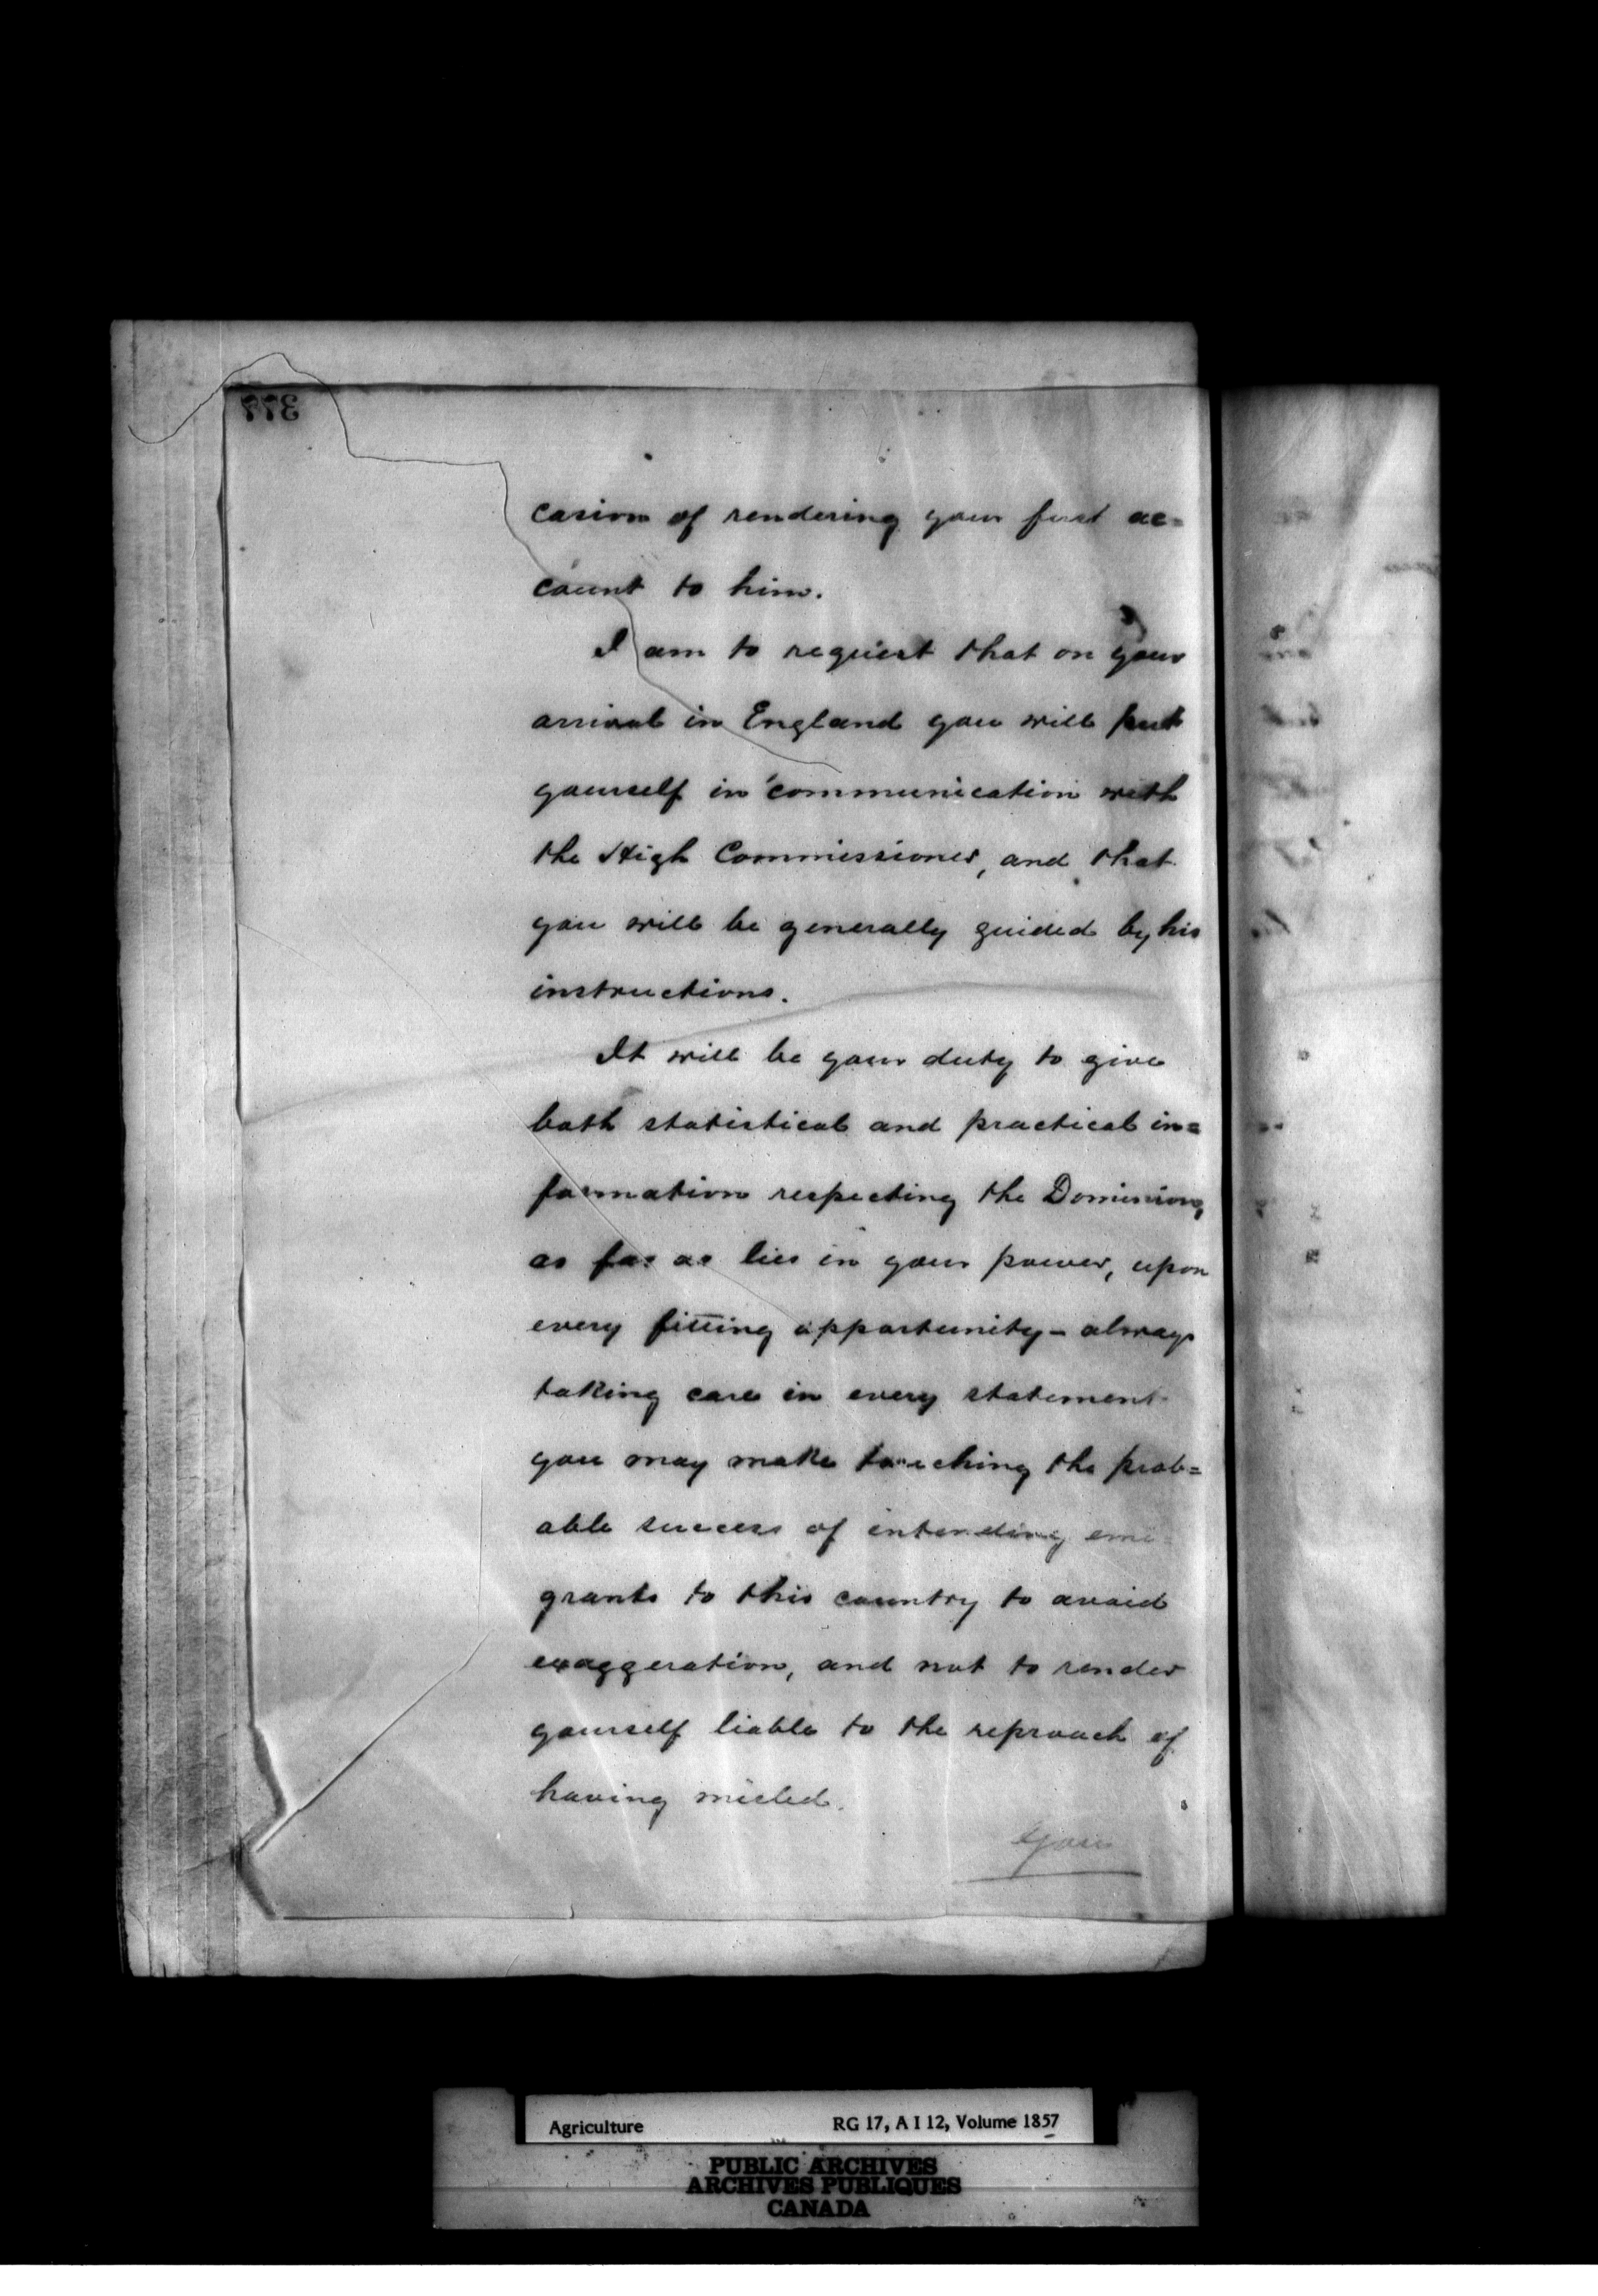 377
casion of rendering your first ac=
count to him.
I am to request that on your
arrival in England you will put
yourself in communication with
the High Commissioner, and that
you will be generally guided by his
instructions.
It will be your duty to give
both statistical and practical in=
formation respecting the Dominion,
as far as lies in your power, upon
every fitting opportunity - always
taking care in every statement
you may make touching the prob=
able success of intending emi=
grants to this country to avoid
exaggeration, and not to render
yourself liable to the reproach of
having misled.
You
Agriculture RG 17, A I 12, Volume 1857
PUBLIC ARCHIVES
ARCHIVES PUBLIQUES
CANADA